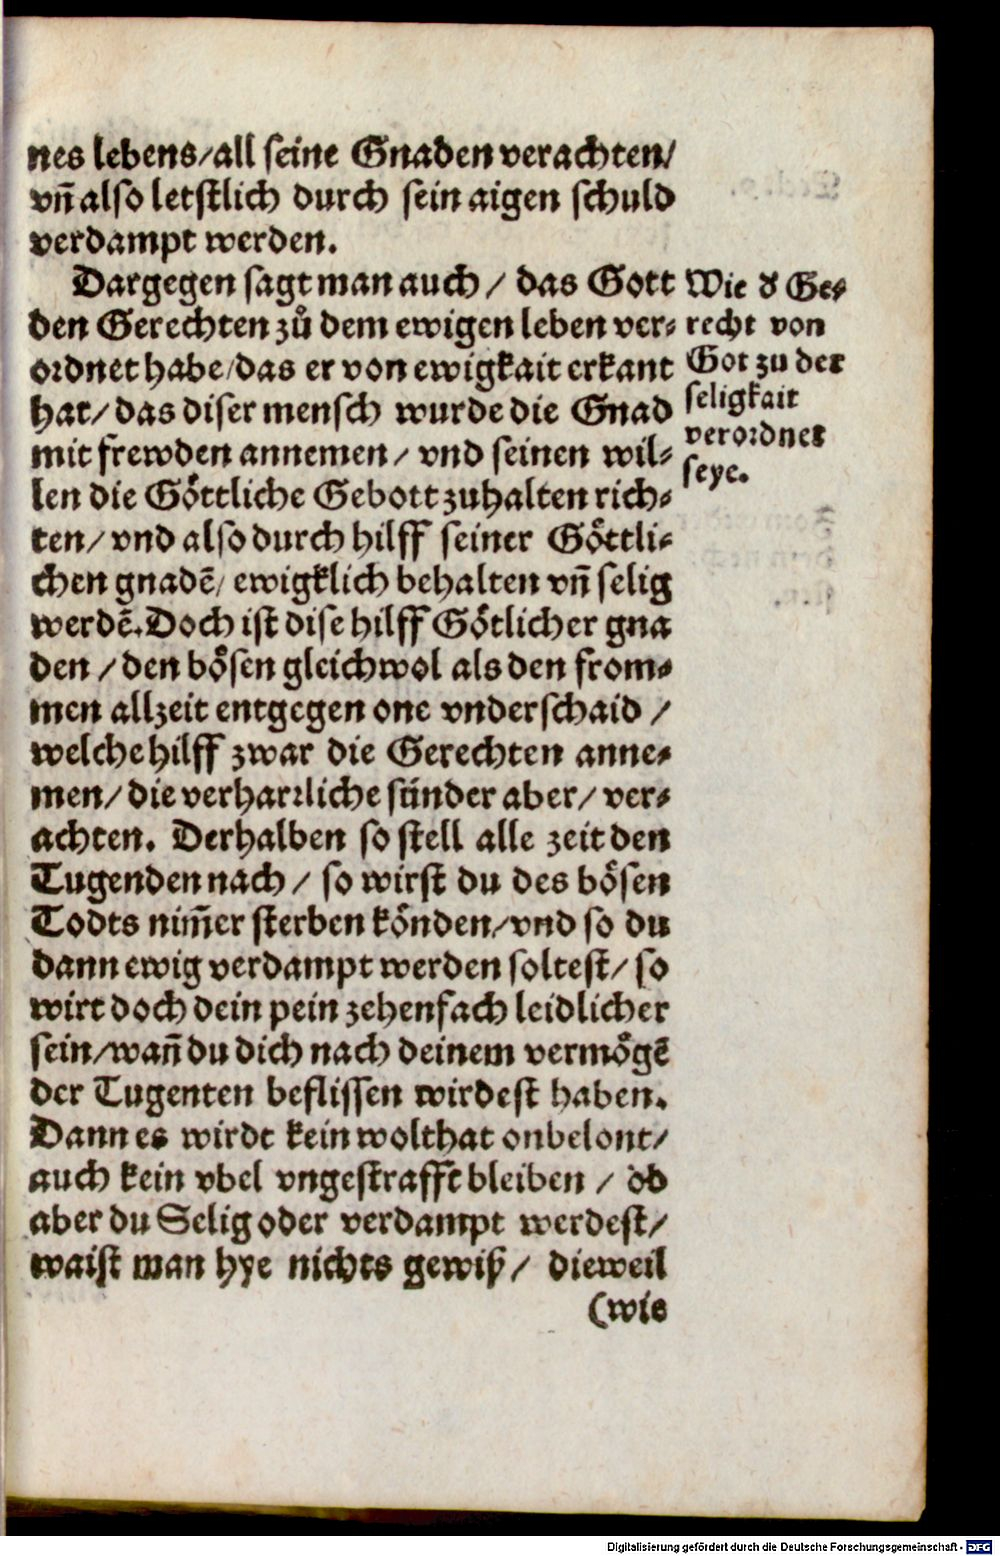 nes lebens/all seine Gnaden verachten/
vn̄ also letstlich durch sein aigen schuld
verdampt werden.
Dargegen sagt man auch / das Gott
den Gerechten zů dem ewigen leben ver⸗
ordnet habe/das er von ewigkait erkant
hat/ das diser mensch wurde die Gnad
mit frewden annemen/ vnd seinen wil⸗
len die Göttliche Gebott zuhalten rich⸗
ten/ vnd also durch hilff seiner Göttli⸗
chen gnadē/ ewigklich behalten vn̄ selig
werdē. Doch ist dise hilff Götlicher gna
den / den bösen gleichwol als den from⸗
men allzeit entgegen one vnderschaid /
welche hilff zwar die Gerechten anne⸗
men/ die verharrliche sünder aber/ ver⸗
achten. Derhalben so stell alle zeit den
Tugenden nach / so wirst du des bösen
Todts nim̄er sterben könden/vnd so du
dann ewig verdampt werden soltest/ so
wirt doch dein pein zehenfach leidlicher
sein/wan̄ du dich nach deinem vermögē
der Tugenten beflissen wirdest haben.
Dann es wirdt kein wolthat onbelont/
auch kein vbel vngestrafft bleiben / ob
aber du Selig oder verdampt werdest/
waist man hye nichts gewiß/ dieweil
(wie
Wie d̓ Ge⸗
recht von
Got zu der
seligkait
verordnet
seye.
Digitalisierung gefördert durch die Deutsche Forschungsgemeinschaft - DFG